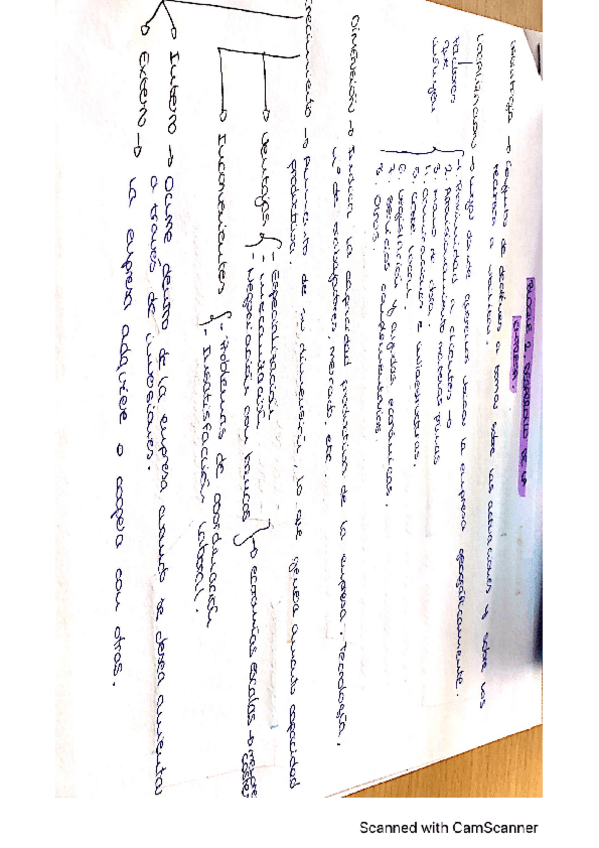 BLOQUE 2. DESARROLLO DE LA
EMPRESA.
Estrategia → Conjunto de decisiones a tomar sobre las actuaciones y sobre los
recursos a utilizar.
LOCALIZACIÓN → lugar donde queremos ubicar la empresa geográficamente.
Factores
que
influyen
1. Proximidad a clientes →
2. Aprovisionamiento materias primas
3. mano de obra.
4. comunicaciones e infraestructuras.
5. Coste local.
6. Legislación y ayudas económicas.
7. servicios complementarios.
8. Otros.
DIMENSIÓN → Indica la capacidad productiva de la empresa. Tecnología,
nº de trabajadores, mercado, etc.
crecimiento → Aumento de su dimensión, lo que genera aumento capacidad
productiva.
Ventajas - Especialización
- mecanización
- Negociación con bancos } → economías escalas →
Inconvenientes - Problemas de coordinación
- Insatisfacción laboral.
Interno → Ocurre dentro de la empresa cuando se desea aumentar
a través de inversiones.
Externo → La empresa adquiere o coopera con otras.
Scanned with CamScanner